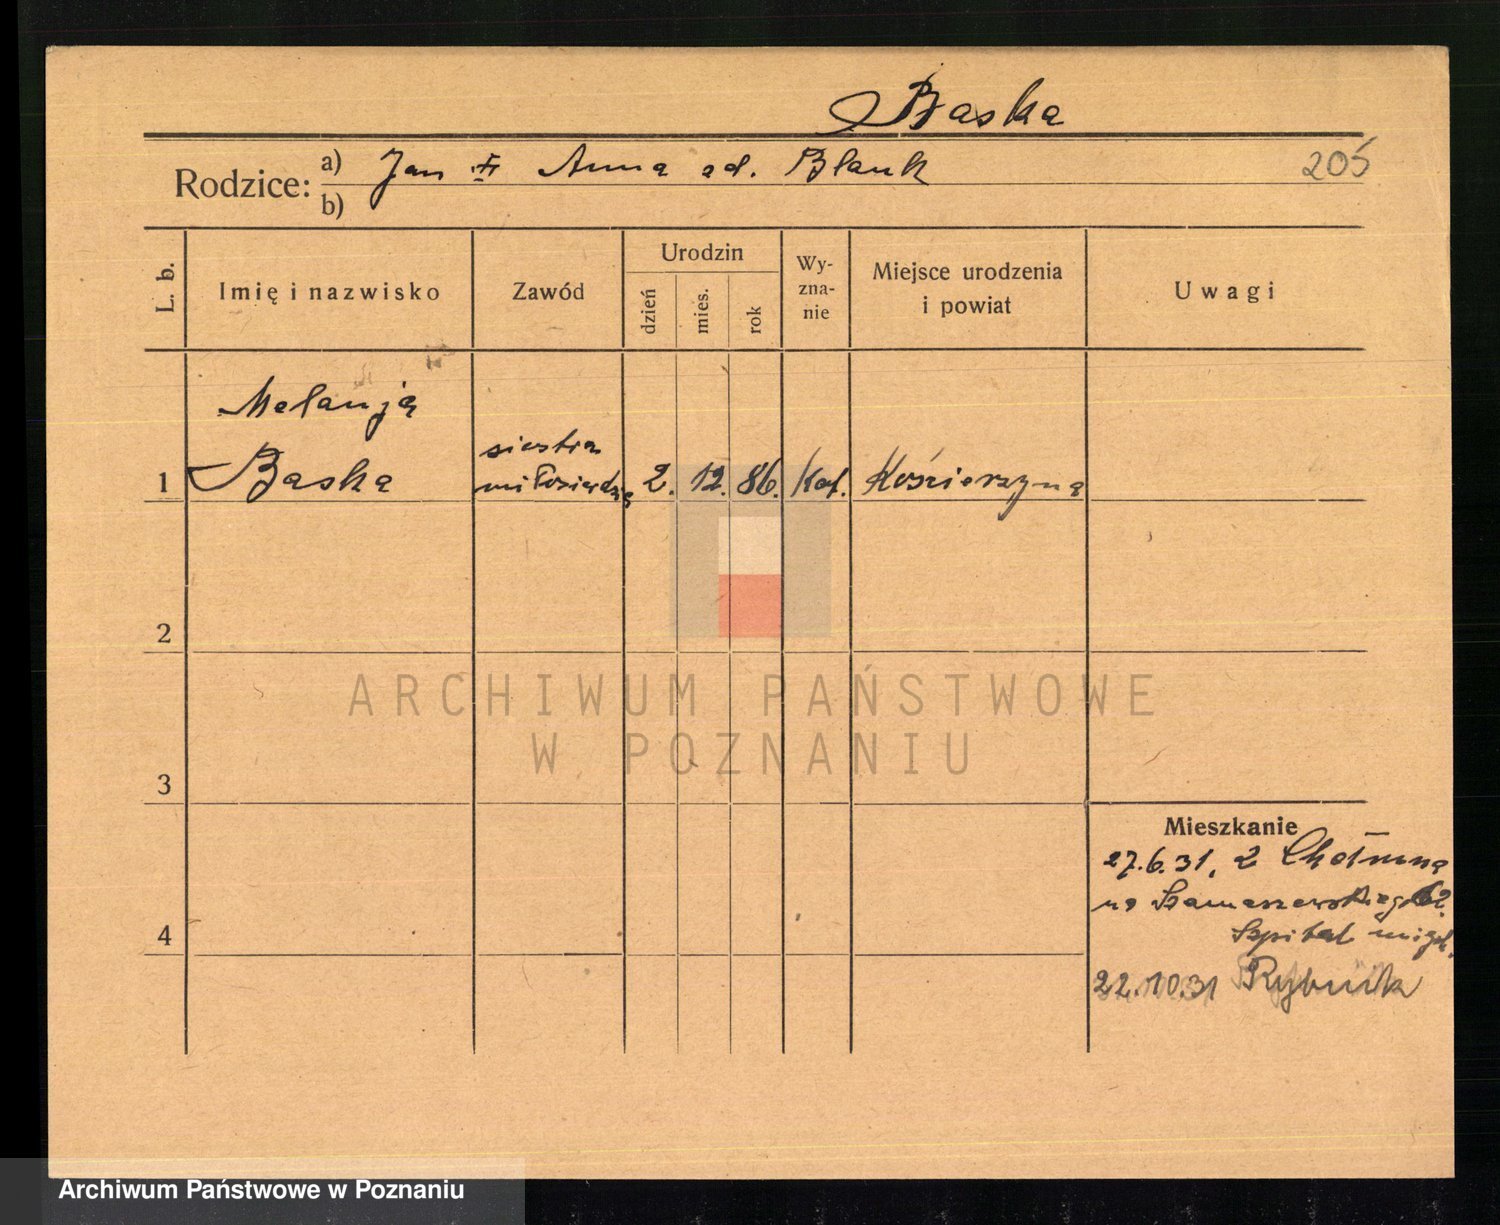 Baska
205
Rodzice: a) Jan Anna od. Blank
b)
L. b.
Imię i nazwisko
Zawód
Urodzin
dzień
mies.
rok
Wy-
zna-
nie
Miejsce urodzenia
i powiat
Uwagi
Melanja
siostra
1 Baska miłosierdzia 2. 12. 86. kat. Kościerzyna
2
3
4
Mieszkanie
27.6.31. z Chełmna
Szpital miejs.
22.10.31 Rybnik
ARCHIWUM PAŃSTWOWE
W POZNANIU
Archiwum Państwowe w Poznaniu